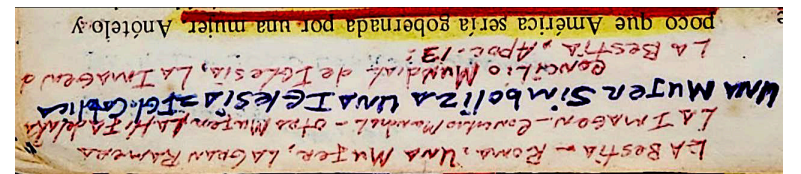 LA BESTIA - ROMA, UNA MUJER, LA GRAN RAMERA
LA IMAGEN - Concilio Mundial - OTRA MUJER
UNA MUJER SIMBOLIZA UNA IGLESIA = IGL. Católica
CONCILIO MUNDIAL de IGLESIA, LA IMAGEN a
LA BESTIA, APOC. 13:
poco que América sería gobernada por una mujer. Anótelo y